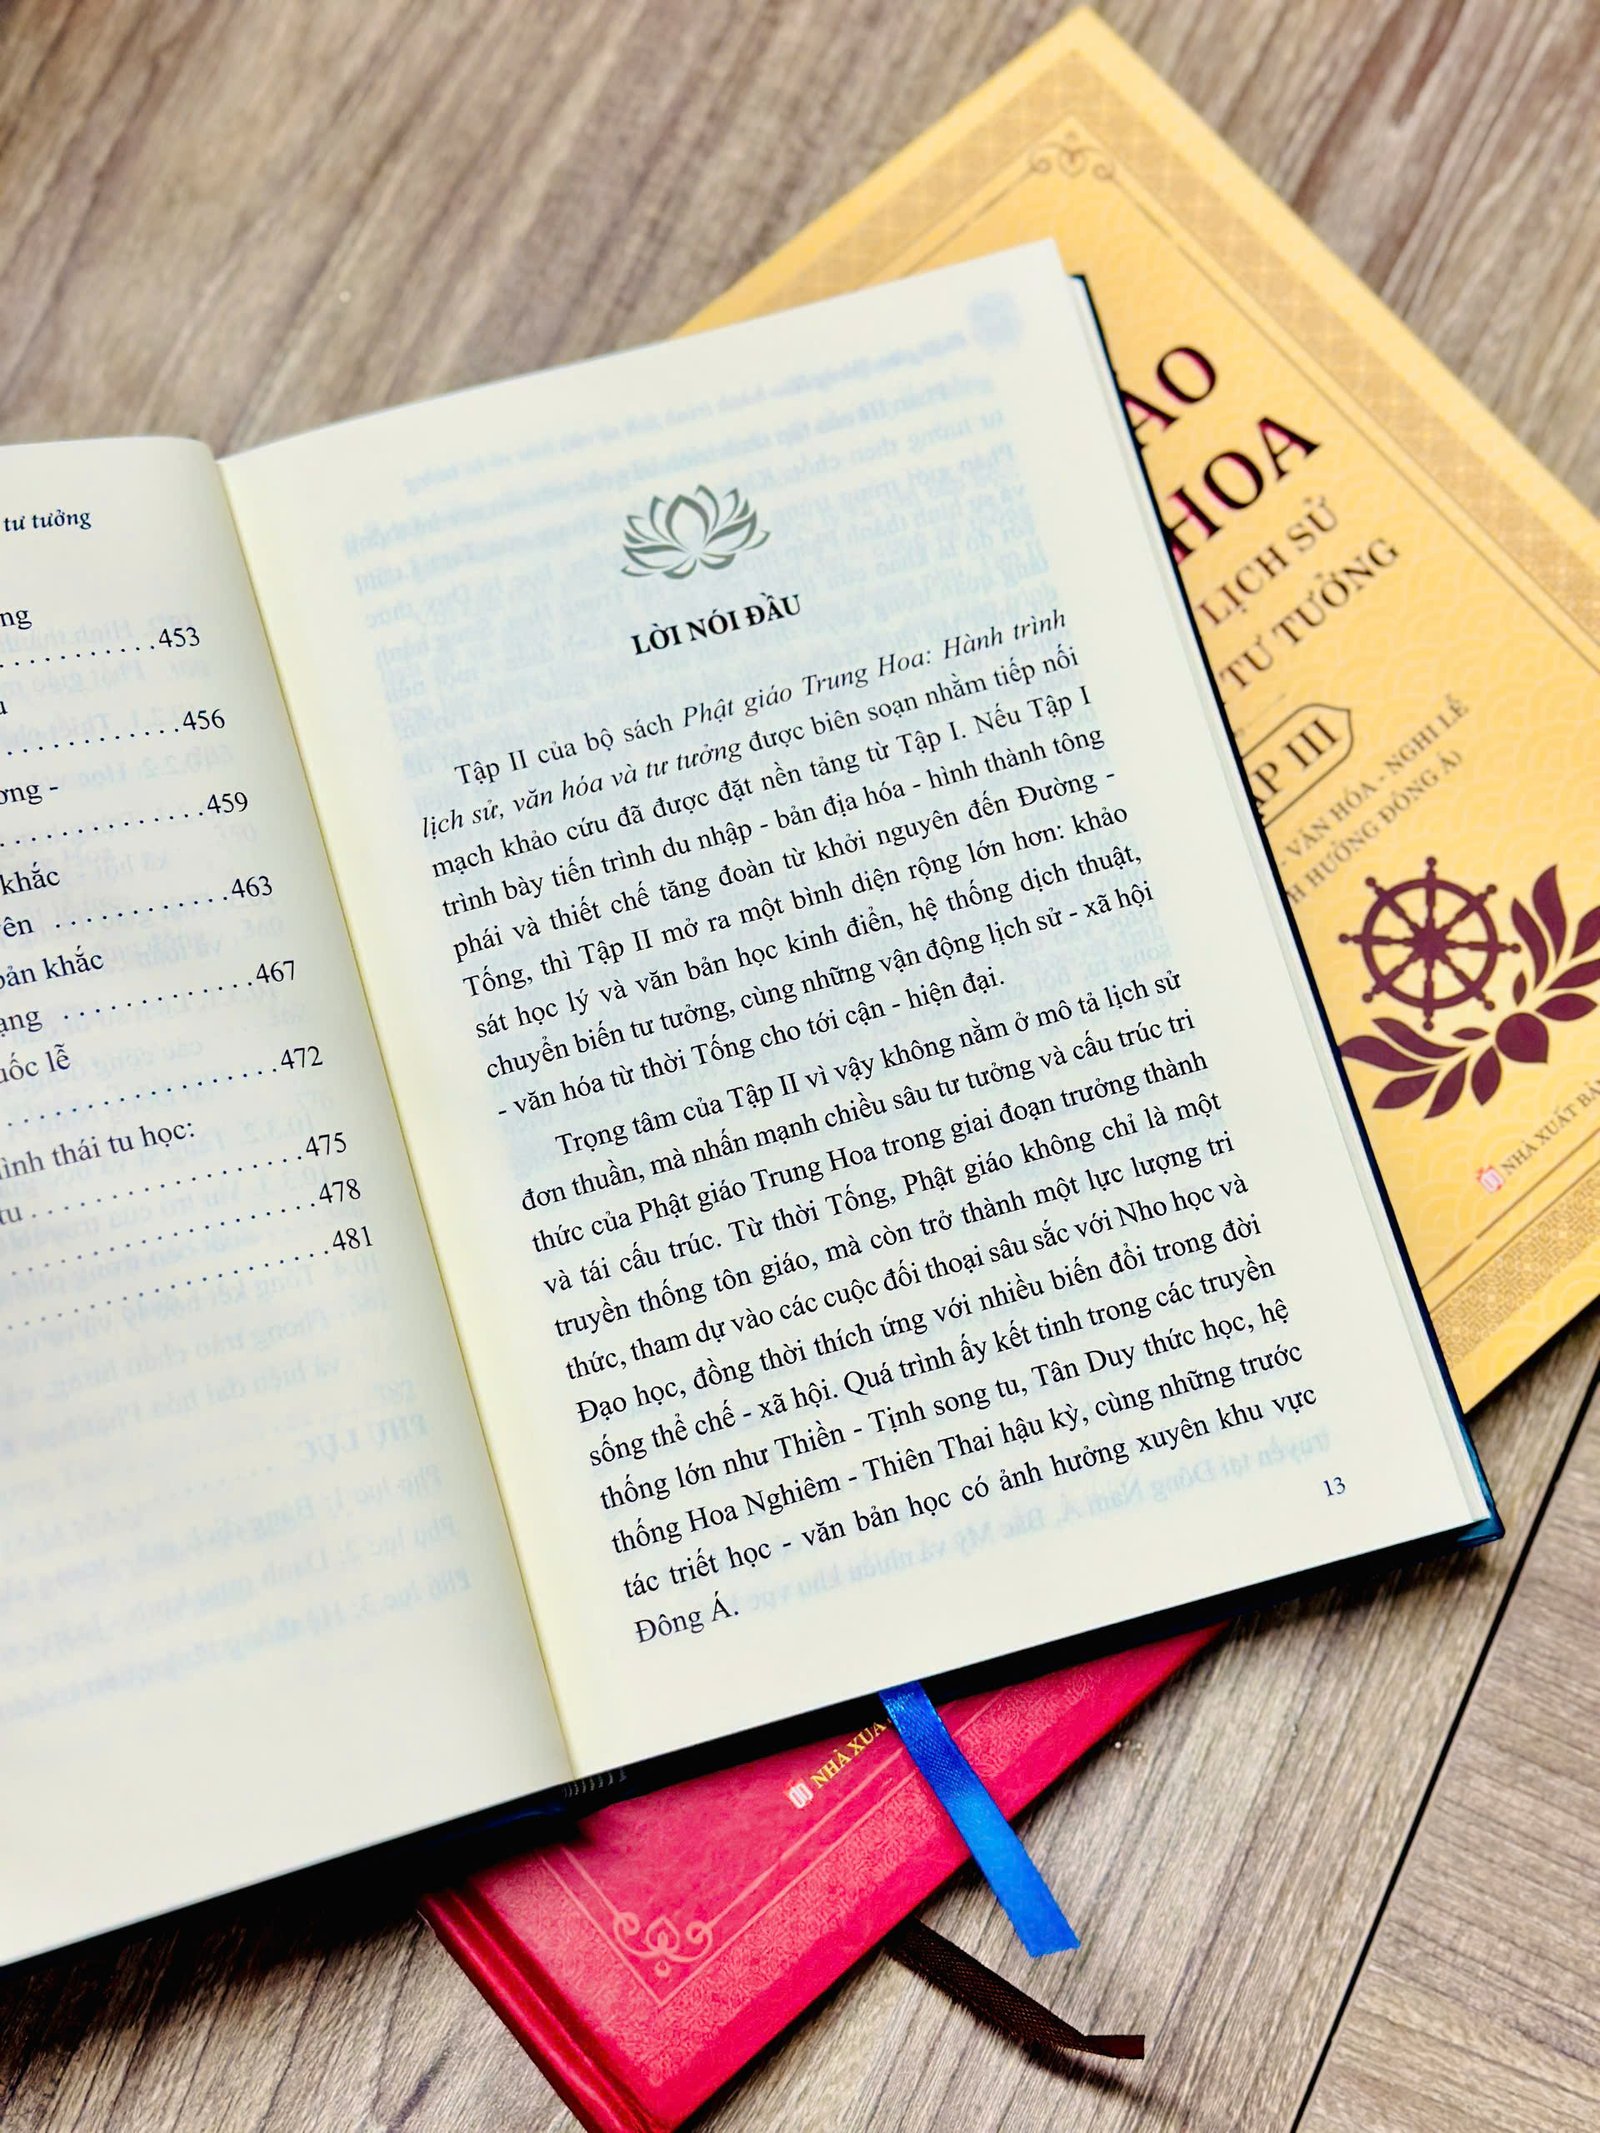 tư tưởng
ng
. . . . . . . . . . .453
. . . . . . . . . . . . .456
ơng -
. . . . . . . . . . . . . . .459
khắc
ên . . . . . . . . . . . .463
bản khắc
ạng . . . . . . . . . . . . .467
uốc lễ
. . . . . . . . . . . . . . . . .472
ình thái tu học:
tu . . . . . . . . . . . . . . . . . .475
. . . . . . . . . . . . . . . . . . . .478
. . . . . . . . . . . . . . . . . . . .481
LỜI NÓI ĐẦU
Tập II của bộ sách Phật giáo Trung Hoa: Hành trình
lịch sử, văn hóa và tư tưởng được biên soạn nhằm tiếp nối
mạch khảo cứu đã được đặt nền tảng từ Tập I. Nếu Tập I
trình bày tiến trình du nhập - bản địa hóa - hình thành tông
phái và thiết chế tăng đoàn từ khởi nguyên đến Đường -
Tống, thì Tập II mở ra một bình diện rộng lớn hơn: khảo
sát học lý và văn bản học kinh điển, hệ thống dịch thuật,
chuyển biến tư tưởng, cùng những vận động lịch sử - xã hội
- văn hóa từ thời Tống cho tới cận - hiện đại.
Trọng tâm của Tập II vì vậy không nằm ở mô tả lịch sử
đơn thuần, mà nhấn mạnh chiều sâu tư tưởng và cấu trúc tri
thức của Phật giáo Trung Hoa trong giai đoạn trưởng thành
và tái cấu trúc. Từ thời Tống, Phật giáo không chỉ là một
truyền thống tôn giáo, mà còn trở thành một lực lượng tri
thức, tham dự vào các cuộc đối thoại sâu sắc với Nho học và
Đạo học, đồng thời thích ứng với nhiều biến đổi trong đời
sống thể chế - xã hội. Quá trình ấy kết tinh trong các truyền
thống lớn như Thiền - Tịnh song tu, Tân Duy thức học, hệ
thống Hoa Nghiêm - Thiên Thai hậu kỳ, cùng những trước
tác triết học - văn bản học có ảnh hưởng xuyên khu vực
Đông Á.
13
ÁO
HOA
LỊCH SỬ
TƯ TƯỞNG
ẬP III
- VĂN HÓA - NGHI LỄ
H HƯỞNG ĐÔNG Á)
NHÀ XUẤT BẢN
NHÀ XUẤ